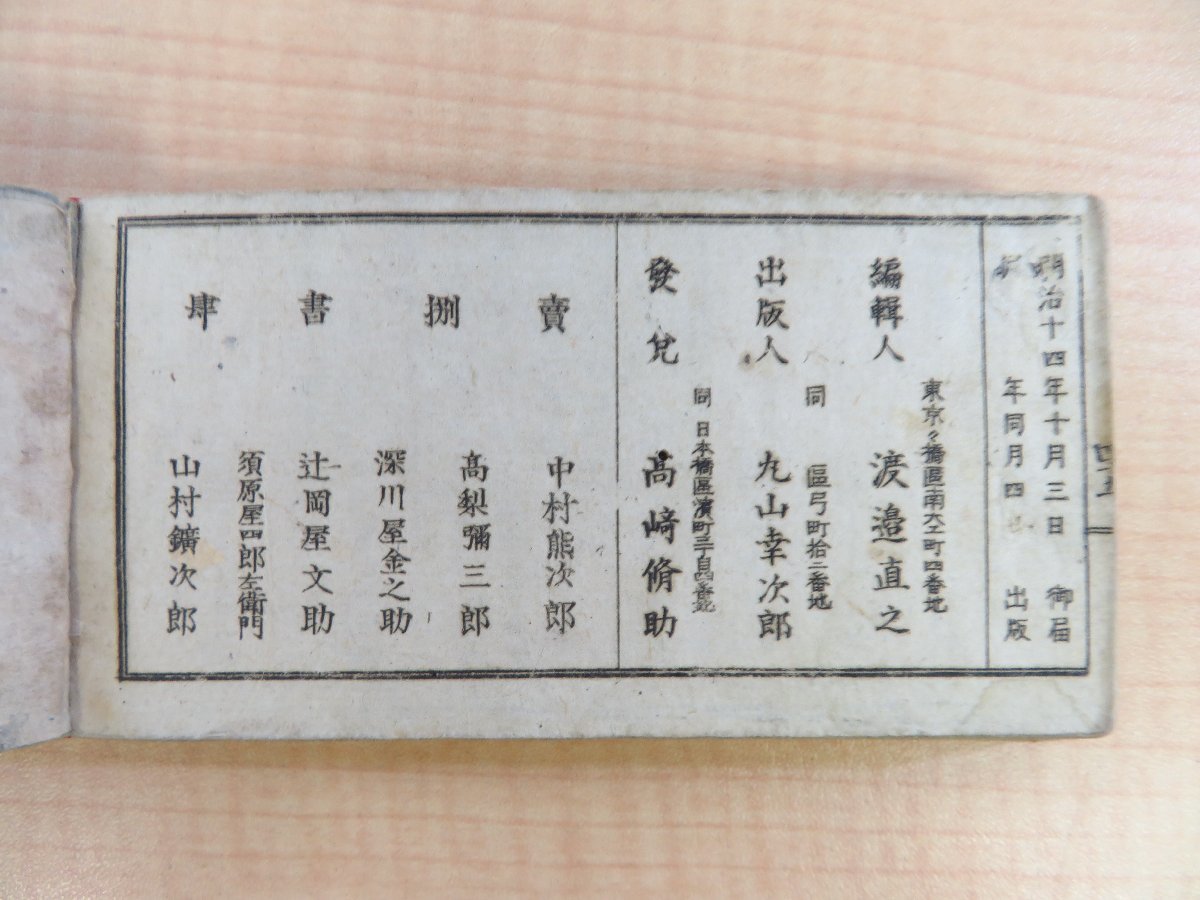 明治十四年十月三日 御届
年同月四 出版
編輯人
東京々橋區南大工町四番地
渡邉直之
出版人
同 區弓町拾二番地
丸山幸次郎
發兌
同 日本橋區濱町三丁目
高﨑脩助
賣捌書肆
中村熊次郎
高梨彌三郎
深川屋金之助
辻岡屋文助
須原屋四郎左衛門
山村鑛次郎